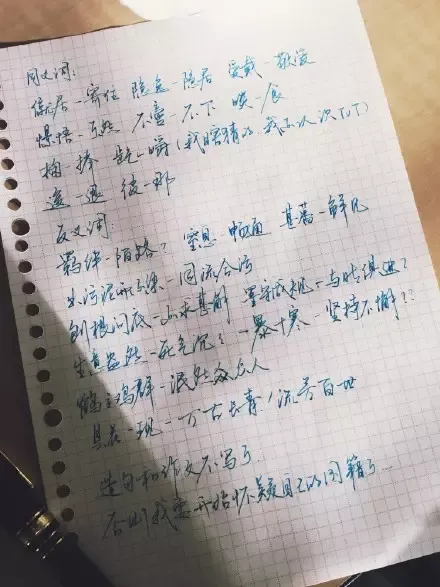 同义词:
居-寄住 隐逸-隐居 爱戴-敬爱
憬悟-了然 不啻-不下 啖-食
-嚼(我瞎猜的,我不认识TUT)
-退
反义词
羁绊-陌路? 窒息-畅通 甚蕃-鲜见
出污泥而不染-同流合污
刨根问底-不求甚解 墨守成规-与时俱进?
生意盎然-死气沉沉 一暴十寒-坚持不懈??
鹤立鸡群-泯然众人
昙花一现-万古长青/流芳百世
造句和作文不写了
否则我要开始怀疑自己的国籍了...